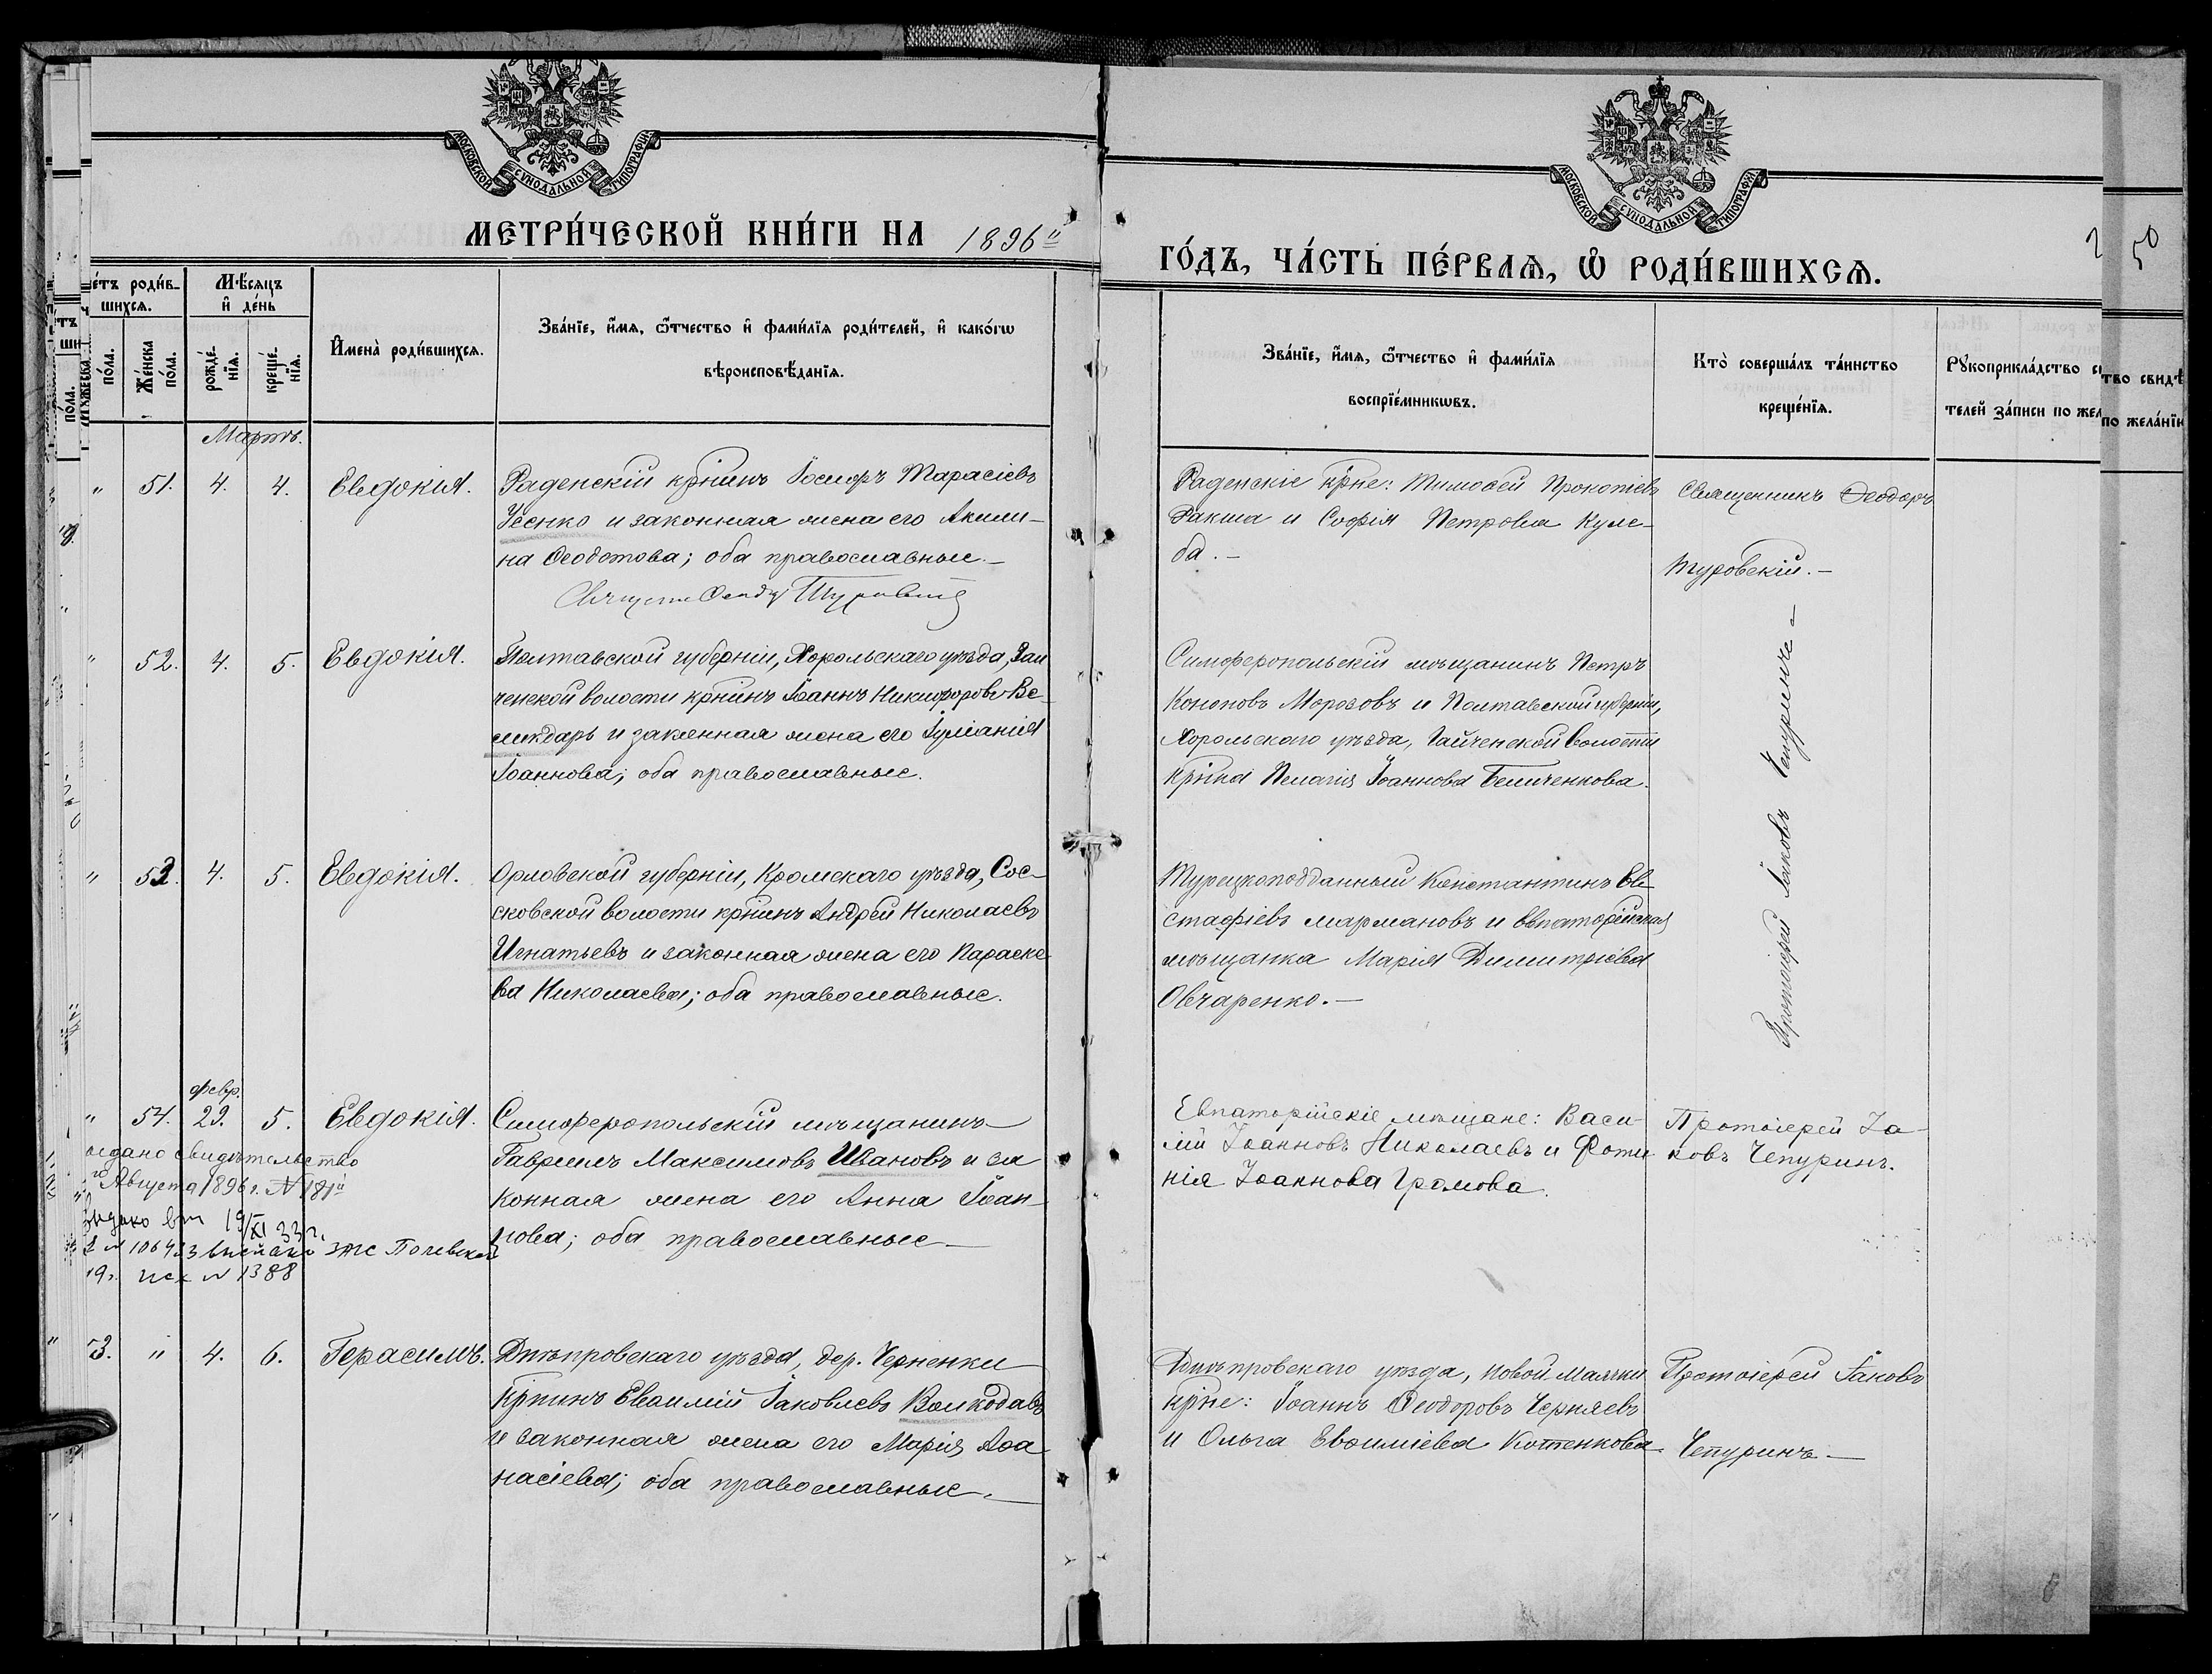 МОСКОВСКОЙ СѴНОДАЛЬНОЙ ТИПОГРАФІИ
МЕТРИ́ЧЕСКОЙ КНИ́ГИ НА 1896й
МОСКОВСКОЙ СѴНОДАЛЬНОЙ ТИПОГРАФІИ
ГО́ДЪ, ЧА́СТЬ ПЕ́РВАѦ, Ѡ РОДИ́ВШИХСѦ.
2 50
е́тъ роди́в-
шихсѧ.
по́ла.
Же́нска
по́ла.
Мѣ́сѧцъ
и де́нь
рожде́-
нїѧ.
креще́-
нїѧ.
И҆мена̀ роди́вшихсѧ.
Зва́нїе, и҆́мѧ, ѻ҆́тчество и҆ фами́лїѧ роди́телей, и҆ како́гѡ
вѣроисповѣ́данїѧ.
Зва́нїе, и҆́мѧ, ѻ҆́тчество и҆ фами́лїѧ
воспрїе́мникѡвъ.
Кто̀ соверша́лъ та́инство
креще́нїѧ.
Рꙋкоприкла́дство
телей за́писи по жел
тво свидѣ
по жела́нїю
Мартъ.
" 51. 4. 4. Евдокія.
Раденскій крнинъ Іосифъ Тарасіевъ
Усенко и законная жена его Акили-
на Ѳеодотова; оба православные.–
Раденскіе крне: Тимоѳей Прокопіевъ
Ракша и Софія Петрова Куле-
ба.–
Священникъ Ѳеодоръ
Туровскій.–
" 52. 4. 5. Евдокія.
Полтавской губерніи, Хорольскаго уѣзда,
ченской волости крнинъ Іоаннъ Никифоровъ Ве-
ликдарь и законная жена его Іуліанія
Іоаннова; оба православные.
Симферопольскій мѣщанинъ Петръ
Кононовъ Морозовъ и Полтавской губерніи,
Хорольскаго уѣзда, волости
крнка Пелагія Іоаннова
Протоіерей Іаковъ Чепуринъ–
" 53. 4. 5. Евдокія.
Орловской губерніи, Кромскаго уѣзда, Сос-
сковской волости крнинъ Андрей Николаевъ
Игнатьевъ и законная жена его Параске-
ва Николаева; оба православные.
Турецкоподданный Константинъ Ев-
стафіевъ Мармановъ и евпаторійская
мѣщанка Марія Димитріева
Овчаренко.–
Февр.
" 54. 29. 5. Евдокія.
Симферопольскій мѣщанинъ
Гавріилъ Максимовъ Ивановъ и за
конная жена его Анна Іоан-
нова; оба православные–
свидѣтельство
Августа 1896 г. № 181й
19/XI 33 г.
19г. исх № 1388
Евпаторійскіе мѣщане: Васи-
лій Іоанновъ Николаевъ и Фоти-
нія Іоаннова Громова.
Протоіерей Іа-
ковъ Чепуринъ.
53. " 4. 6. Герасимъ.
Днѣпровскаго уѣзда, дер. Черненки
крнинъ Евѳимій Іаковлевъ Волкодавъ
и законная жена его Марія Аѳа
насіева; оба православные.–
Днѣпровскаго уѣзда, Новой Маячки
крне: Іоаннъ Ѳеодоровъ Черняевъ
и Ольга Евѳиміева Котенкова.
Протоіерей Іаковъ
Чепуринъ–